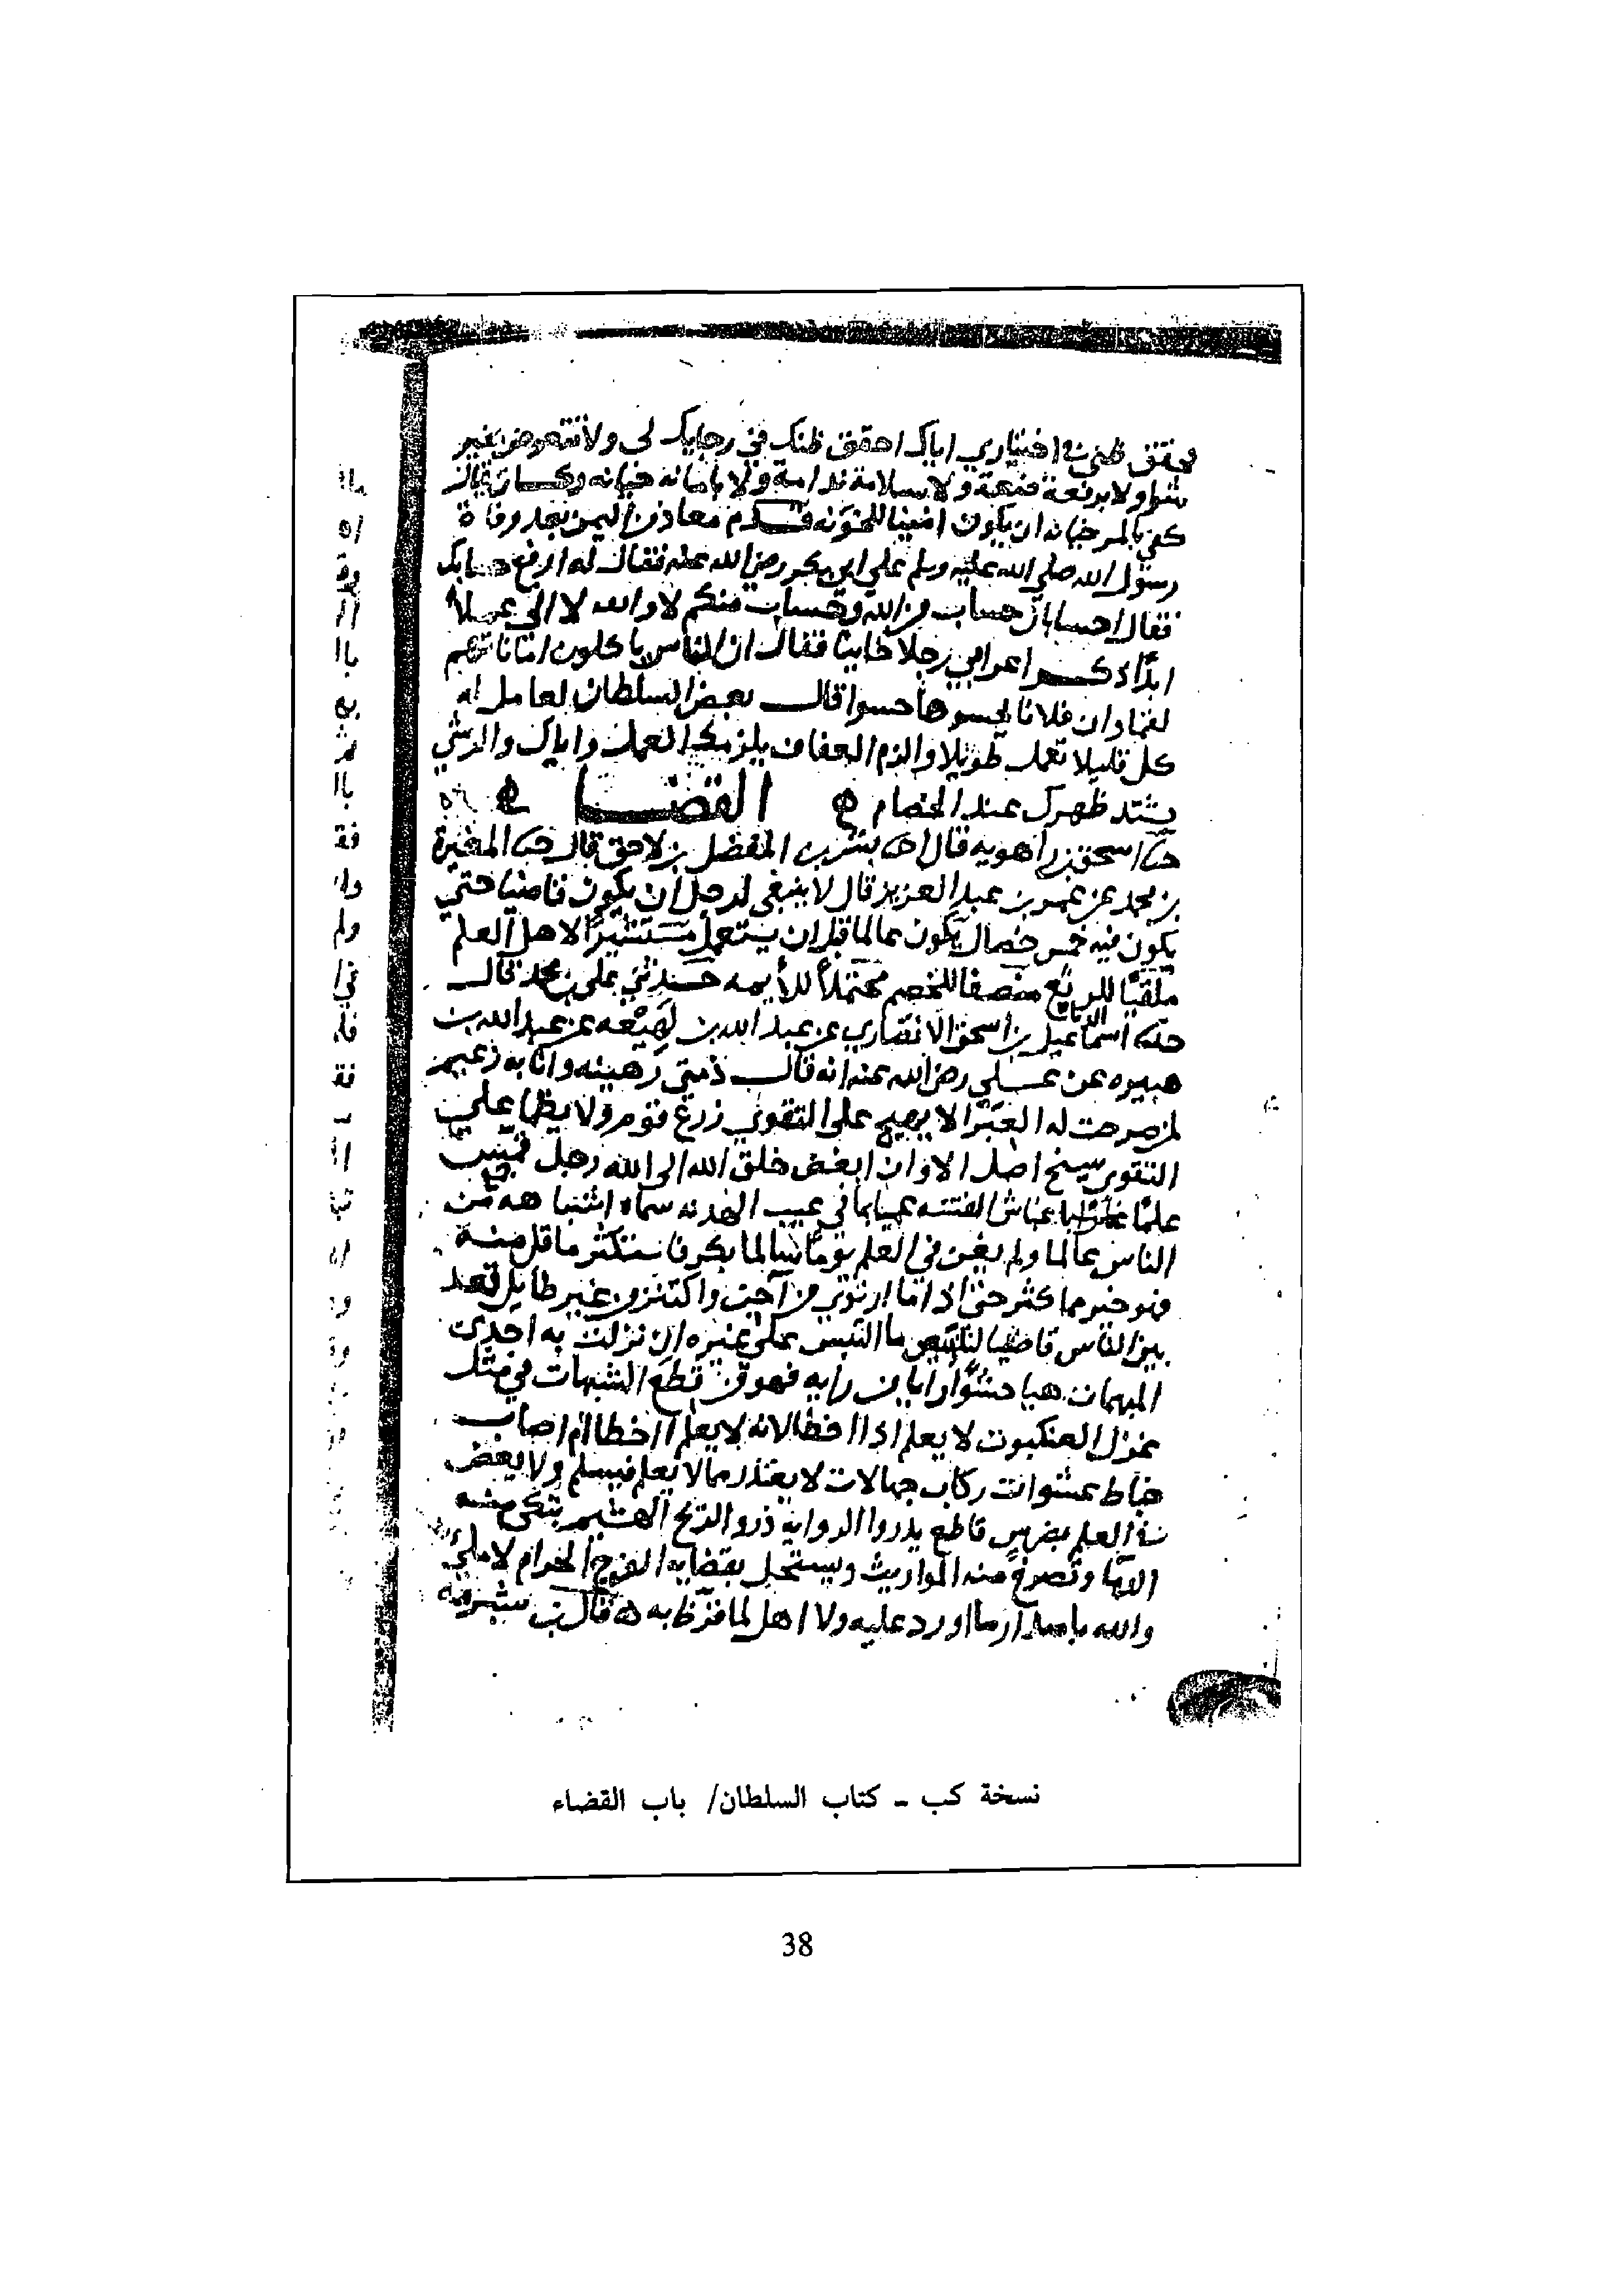 فحقق ظني في اختياري اياك احقق ظنك في رجايك لي ولا تتعوض بخير
شرا ولا برفعة ضعة ولا بسلامة ندامة ولا بامانه خيانه وكـــان يقال
كفي بالمر خيانه ان يكون امينا للخونه قـــدم معاذ من اليمن بعد وفاة
رسول الله صلي الله عليه وسلم علي ابي بكر رضي الله عنه فقال له ارفع حسابك
فقال احسابان حساب من الله وحساب منكم لا والله لا الي عملا
ابدا ذكـــر اعرابي رجلا خاينا فقال ان الناس ياكلون اماناتهم
لقما وان فلانا يحسوها حسوا قال بعض السلطان لعامل له
كل قليلا تعمل طويلا والزم العفاف يلزمك العمل واياك والرشي
يشتد ظهرك عند الخصام ه القضـــا ه
اسحق بن راهويه قال بشر بن المفضل بن لاحق قال المغيرة
بن محمد عن عمر بن عبد العزيز قال لا ينبغي لرجل ان يكون قاضيا حتي
يكون فيه خمس خصال يكون عالما قبل ان يستعمل مستشيرا لاهل العلم
ملقيا للرثع منصفا للخصم محتملا للأيمه حـــدثني علي بن محمد قال
اسماعيل بن اسحق الانصاري عن عبد الله بن لهيعه عن عبد الله بن
هبيره عن عـــلي رضي الله عنه انه قال ذمتي رهينه وانا به زعيم
لمن صرحت له العبر الا يهيج علي التقوي زرع قوم ولا يظما علي
التقوي سنخ اصل الا وان ابغض خلق الله الي الله رجل قمش
علما الفتنه عميا بما في عيب الهدنه سماه اشباهه من
الناس عالما ولم يغن في العلم يوما سالما بكر فاستكثر ما قل منه
فهو خير مما كثر حتي اذا ما ارتوي من آجن واكتنز من غير طايل قعد
بين الناس قاضيا لتلخيص ما التبس علي غيره ان نزلت به احدي
المبهمات هيا حشوا رايا من رايه فهو من قطع الشبهات في مثل
غزل العنكبوت لا يعلم اذا اخطا لانه لا يعلم ااخطا ام اصاب
خباط عشوات ركاب جهالات لا يعتذر مما لا يعلم فيسلم ولا يعض
في العلم بضرس قاطع يذروا الروايه ذرو الريح الهشيم تبكي منه
الدما وتصرخ منه المواريث ويستحل بقضايه الفرج الحرام لا ملي
والله باصدار ما اورد عليه ولا اهل لما قرظ به ه قال بن شبرمه
نسخة كب - كتاب السلطان/ باب القضاء
38